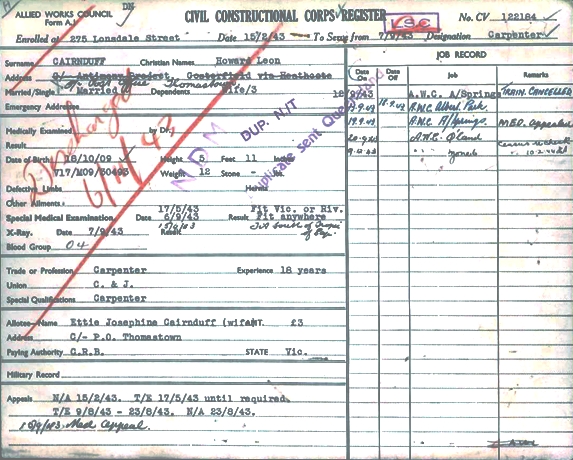 ALLIED WORKS COUNCIL
Form A.1
CIVIL CONSTRUCTIONAL CORPS REGISTER
C.S.C.
No. CV 122184
Enrolled at 275 Lonsdale Street Date 15/2/43 To Serve from 7/9/43 Designation Carpenter
Surname CAIRNDUFF Christian Names Howard Leon
Address C/- Antimony Project, Costerfield via Heathcote
Thomastown
Married/Single Married Dependents Wife/3
Emergency Address
Medically Examined by Dr.
Result
Date of Birth 18/10/09 Height 5 Feet 11 Inches
V17/M09/50493 Weight 12 Stone -
Defective Limbs Hernia
Other Ailments
17/5/43 Fit Vic. or Riv.
Special Medical Examination Date 6/9/43 Result Fit anywhere
X-Ray. Date 7/9/43 Result
Blood Group O4
Discharged
MDM
DUP. N/T
Duplicate sent Queensland
Trade or Profession Carpenter Experience 18 years
Union C. & J.
Special Qualifications Carpenter
Allottee—Name Ettie Josephine Cairnduff (wife) MT. £3
Address C/- P.O. Thomastown
Paying Authority C.R.B. STATE Vic.
Military Record
Appeals N/A 15/2/43. T/E 17/5/43 until required.
T/E 9/8/43 - 23/8/43. N/A 23/8/43.
Med Appeal.
JOB RECORD
Date On Date Off Job Remarks
9/43 A.W.C. A/Springs TRAIN. CANCELLED
A.W.C. Albert Park.
A.W.C. A/Springs. MED. Appealed
A.W.C. Q'land